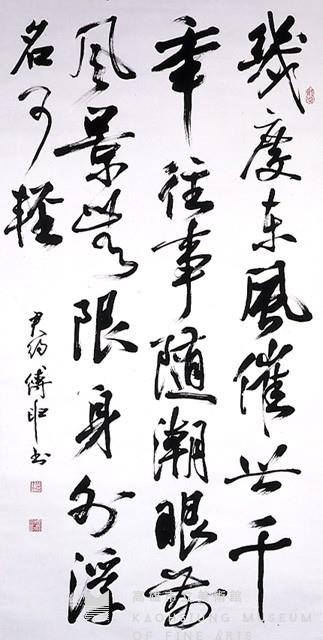 幾度东風催世千
年往事随潮眼前
风景限身外浮
名可輕
君約傅申书
高雄市立美術館
KAOHSIUNG MUSEUM
OF FINE ARTS